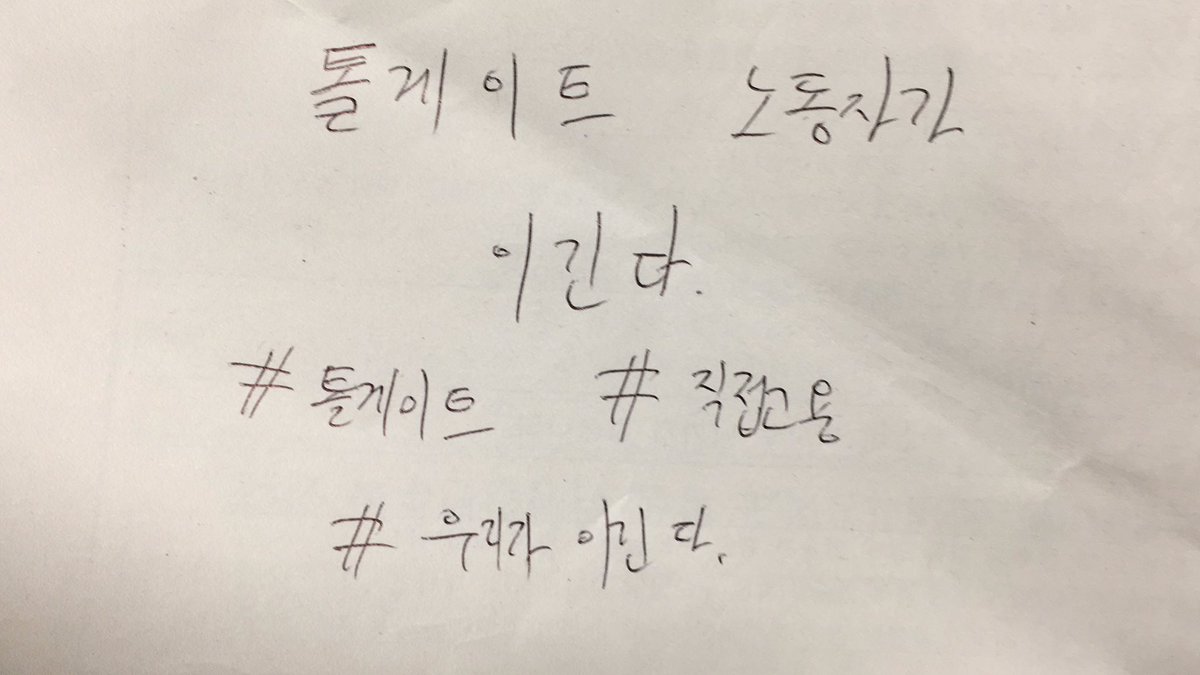 톨게이트 노동자가
이긴다.
# 톨게이트 # 직접고용
# 우리가 이긴다.